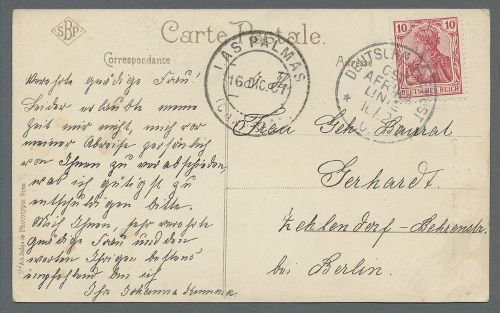 SBP
Carte Postale.
Correspondance
Adresse
10 10
DEUTSCHES REICH
LAS PALMAS
16 DIC
DEUTSCHE
AFRIKA
LINIE
Verehrte gnädige Frau!
Leider erlaubte mein
Zeit mir nicht, mich vor
meiner Abreise persönlich
von Ihnen zu verabschieden
was ich gütigst zu
entschuldigen bitte.
Mich Ihnen, sehr verehrte
gnädige Frau und den
werten Ihrigen bestens
empfehlend bin ich
Ihr Johannes
Frau Geh. Baurat
Gerhardt.
Zehlendorf-
bei Berlin.